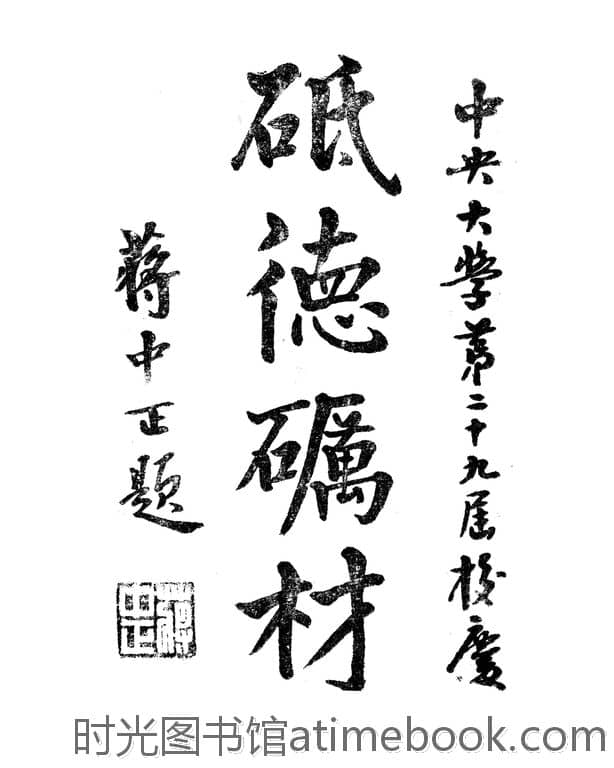 中央大學第二十九屆校慶
砥德礪材
蔣中正題
蔣中正
时光图书馆atimebook.com